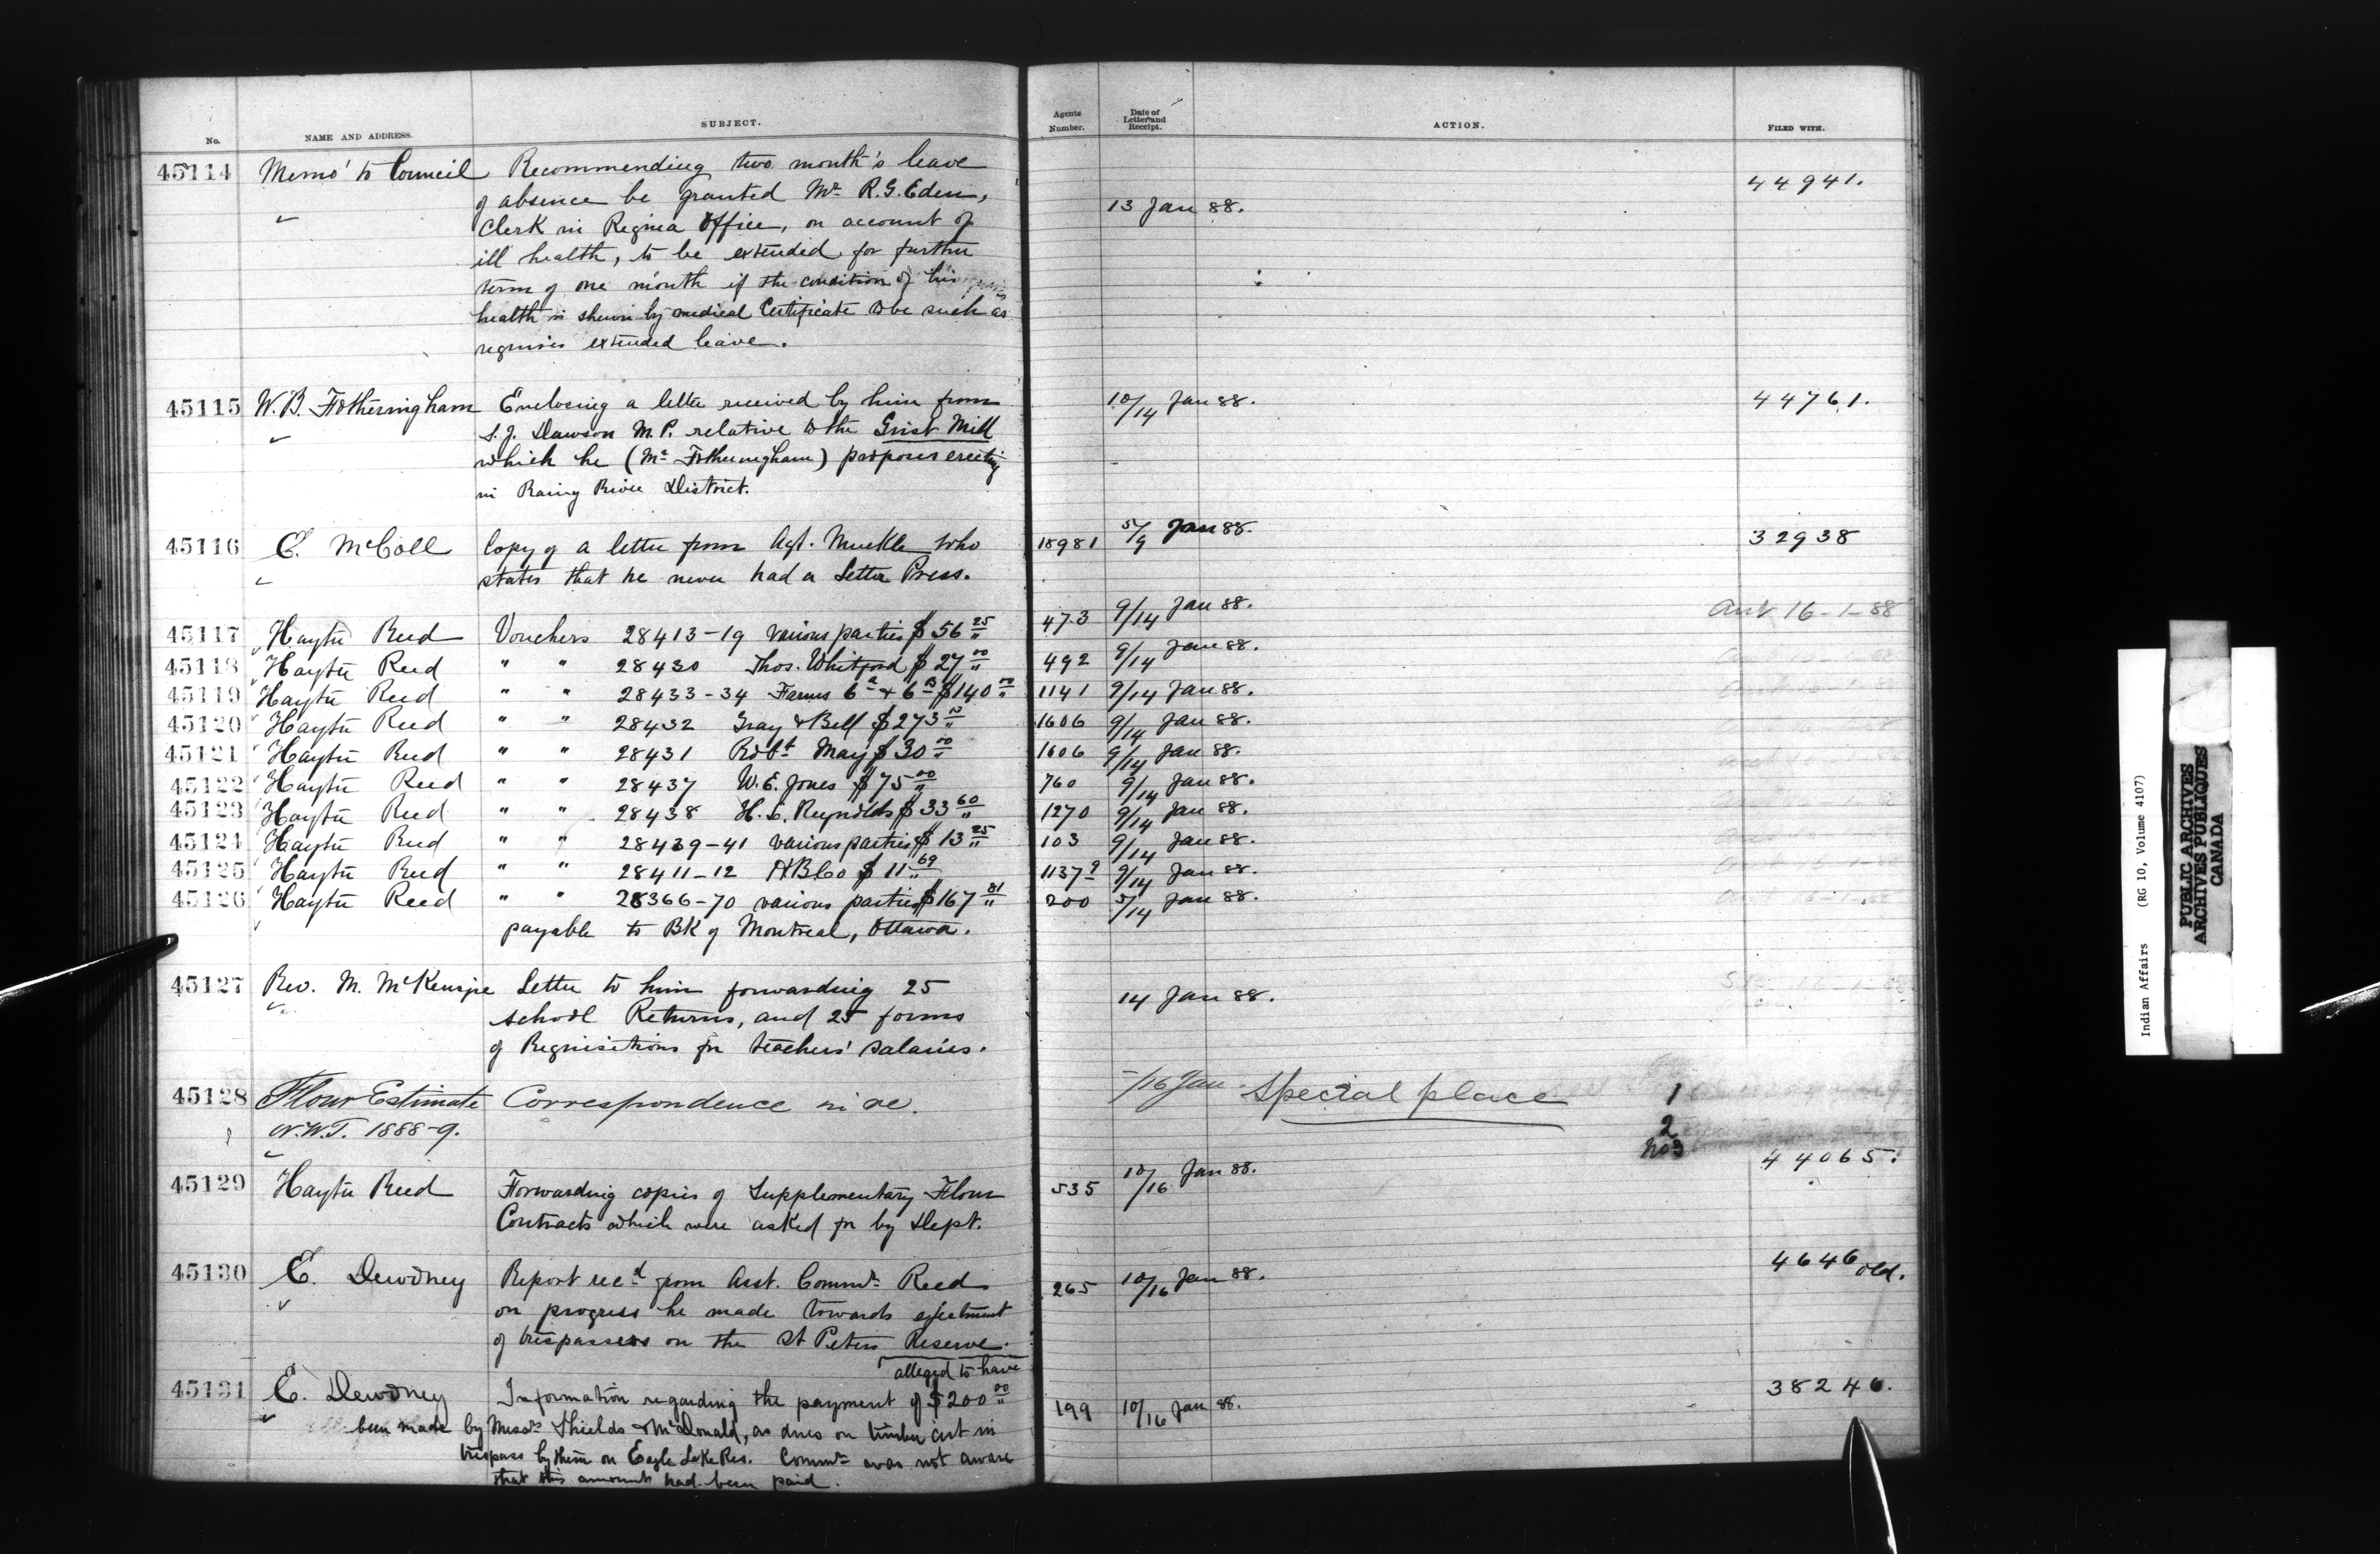 No. NAME AND ADDRESS. SUBJECT. Agents Number. Date of Letter and Receipt. ACTION. FILED WITH.
45114 Memo' to Council Recommending two month's leave 44941.
of absence be granted Mr R.G. Eden, 13 Jan 88.
Clerk in Regina Office, on account of
ill health, to be extended for further
term of one month if the condition of his
health is shewn by medical Certificate to be such as
requires extended leave.
45115 W.B. Fotheringham Enclosing a letter received by him from 10/14 Jan 88. 44761.
S.J. Dawson M.P. relative to the Grist Mill
which he (Mr Fotheringham) proposes erecting
in Rainy River District.
45116 E. McColl Copy of a letter from Agt. Muckle who 18981 5/9 Jan 88. 32938
states that he never had a Letter Press.
45117 Hayter Reed Vouchers 28413-19 various parties $56 25 473 9/14 Jan 88. 16-1-88
45118 Hayter Reed " " 28430 Thos. Whitford $27 00 492 9/14 Jan 88.
45119 Hayter Reed " " 28433-34 Farms 6a & 6B $140 00 1141 9/14 Jan 88.
45120 Hayter Reed " " 28432 Gray & Bell $273 1606 9/14 Jan 88.
45121 Hayter Reed " " 28431 Robt May $30 00 1606 9/14 Jan 88.
45122 Hayter Reed " " 28437 W.E. Jones $75 00 760 9/14 Jan 88.
45123 Hayter Reed " " 28438 H. S. Reynolds $33 60 1270 9/14 Jan 88.
45124 Hayter Reed " " 28439-41 various parties $13 25 103 9/14 Jan 88.
45125 Hayter Reed " " 28411-12 HBCo $11 69 1137 9/14 Jan 88.
45126 Hayter Reed " " 28366-70 various parties $167 81 200 5/14 Jan 88.
payable to BK of Montreal, Ottawa.
45127 Rev. M. McKenzie Letter to him forwarding 25 14 Jan 88.
school Returns, and 25 forms
of Requisitions for teachers' salaries.
45128 Flour Estimate Correspondence in re. /16 Jan Special place 1
N.W.T. 1888-9. 2
No3
45129 Hayter Reed Forwarding copies of Supplementary Flour 535 10/16 Jan 88. 44065.
Contracts which were asked for by Dept.
45130 E. Dewdney Report recd from Asst. Commr Reed 265 10/16 Jan 88. 4646 old.
on progress he made towards ejectment
of trespassers on the St Peters Reserve.
alleged to have
45131 E. Dewdney Information regarding the payment of $200 00 199 10/16 Jan 88. 38246.
been made by Messrs Shields & McDonald, as dues on timber cut in
trespass by them on Eagle Lake Res. Commr was not aware
that this amount had been paid.
Indian Affairs (RG 10, Volume 4107)
PUBLIC ARCHIVES
ARCHIVES PUBLIQUES
CANADA